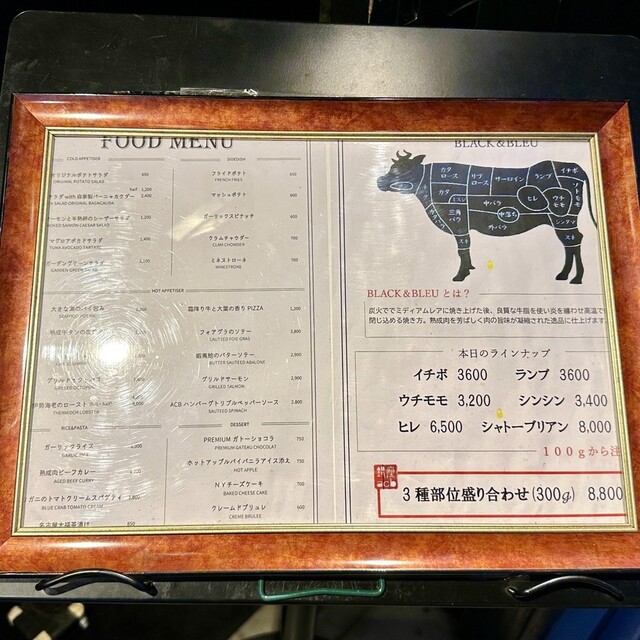 FOOD MENU
COLD APPETISER
オリジナルポテトサラダ 650
ORIGINAL POTATO SALAD
half 1,200
サラダ with 自家製バーニャカウダー 2,400
SALAD ORIGINAL BAGNACAUDA
サーモンと半熟卵のシーザーサラダ
SMOKED SAIMON CAESAR SALAD
マグロアボカドサラダ 1,400
TUNA AVOCADO TARTARE
ガーデングリーンサラダ 1,100
GARDEN GREEN SALAD
SIDEDISH
フライドポテト 600
FRENCH FRIES
マッシュポテト 600
ガーリックスピナッチ 600
クラムチャウダー 700
CLAM CHOWDER
ミネストローネ 700
MINESTRONE
HOT APPETISER
大きな海のパイ包み
SEAFOOD
熟成牛タンの
GRILLED OCTOPUS
伊勢海老のロースト
THERMIDOR LOBSTER
霜降り牛と大葉の香り PIZZA 1,200
フォアグラのソテー 2,800
SAUTEED FOIE GRAS
蝦夷鮑のバターソテー 2,900
BUTTER SAUTEED ABALONE
グリルドサーモン 2,900
GRILLED SALMON
ACB ハンバーグトリプルペッパーソース 2,800
SAUTEED SPINACH
RICE&PASTA
ガーリックライス
GARLIC RICE
熟成肉ビーフカレー
AGED BEEF CURRY
ガニのトマトクリームスパゲティ
BLUE CRAB TOMATO CREAM
名古屋大福茶漬け 850
DESSERT
PREMIUM ガトーショコラ 750
PREMIUM GATEAU CHOCOLAT
ホットアップルパイバニラアイス添え 750
HOT APPLE
NYチーズケーキ 700
BAKED CHEESE CAKE
クレームドブリュレ 700
CREME BRULEE
BLACK&BLEU
カタロース
リブロース
サーロイン
ランプ
イチボ
ソトモモ
カタ
ミスジ
中バラ
ヒレ
ウチモモ
三角バラ
中落ち
外バラ
シンタマ
スネ
スネ
BLACK&BLEU とは？
炭火でミディアムレアに焼き上げた後、良質な牛脂を使い炎を纏わせ高温で
閉じ込める焼き方。熟成肉を芳ばしく肉の旨味が凝縮された逸品に仕上げます
本日のラインナップ
イチボ 3600 ランプ 3600
ウチモモ 3,200 シンシン 3,400
ヒレ 6,500 シャトーブリアン 8,000
100gから注
3種部位盛り合わせ(300g) 8,800